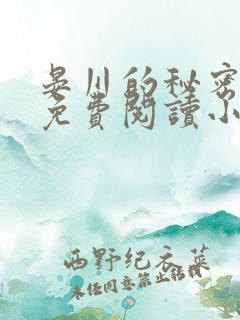 晏川的秘密
免費閱讀小
西野纪衣菜
未经同意禁止转载